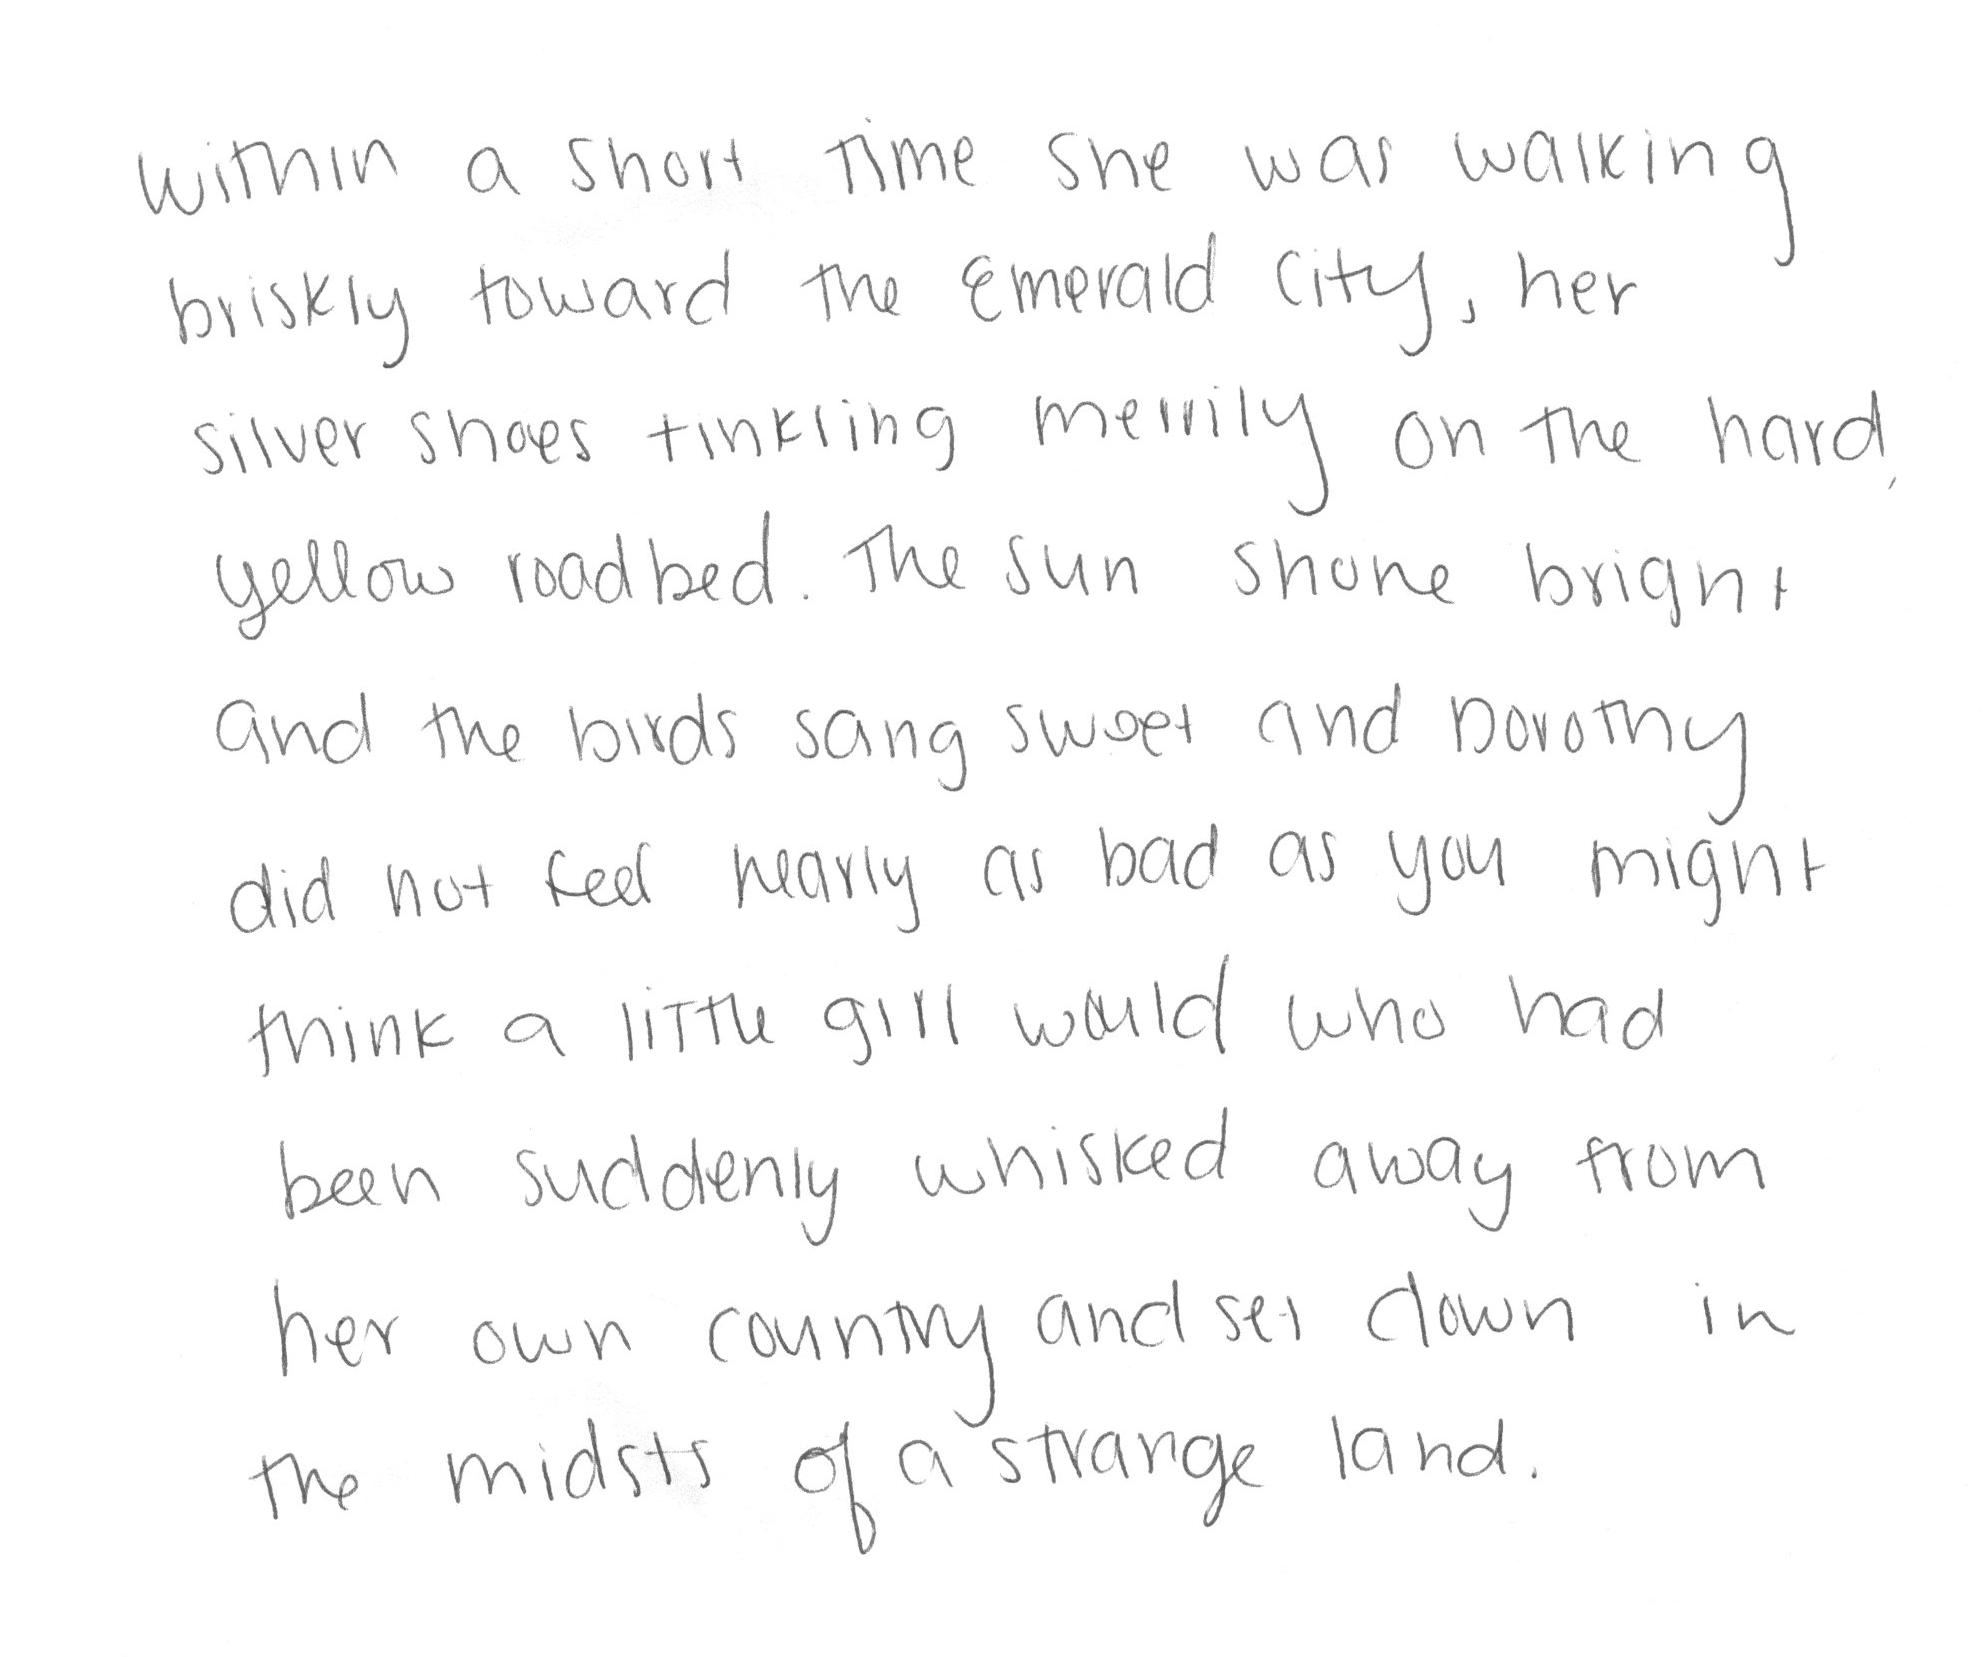 Within a short time she was walking
briskly toward the Emerald City, her
silver shoes tinkling merrily on the hard,
yellow roadbed. The sun shone bright
and the birds sang sweet and Dorothy
did not feel nearly as bad as you might
think a little girl would who had
been suddenly whisked away from
her own country and set down in
the midsts of a strange land.